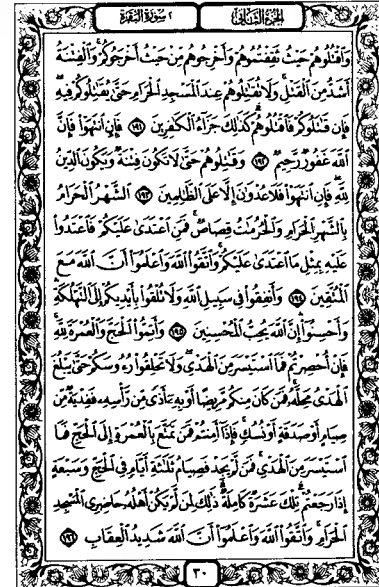 الجزء الثاني ٢ سورة البقرة
وَاقْتُلُوهُمْ حَيْثُ ثَقِفْتُمُوهُمْ وَأَخْرِجُوهُمْ مِنْ حَيْثُ أَخْرَجُوكُمْ وَالْفِتْنَةُ
أَشَدُّ مِنَ الْقَتْلِ وَلَا تُقَاتِلُوهُمْ عِنْدَ الْمَسْجِدِ الْحَرَامِ حَتَّى يُقَاتِلُوكُمْ فِيهِ
فَإِنْ قَاتَلُوكُمْ فَاقْتُلُوهُمْ كَذَلِكَ جَزَاءُ الْكَافِرِينَ ١٩١ فَإِنِ انْتَهَوْا فَإِنَّ
اللَّهَ غَفُورٌ رَحِيمٌ ١٩٢ وَقَاتِلُوهُمْ حَتَّى لَا تَكُونَ فِتْنَةٌ وَيَكُونَ الدِّينُ
لِلَّهِ فَإِنِ انْتَهَوْا فَلَا عُدْوَانَ إِلَّا عَلَى الظَّالِمِينَ ١٩٣ الشَّهْرُ الْحَرَامُ
بِالشَّهْرِ الْحَرَامِ وَالْحُرُمَاتُ قِصَاصٌ فَمَنِ اعْتَدَى عَلَيْكُمْ فَاعْتَدُوا
عَلَيْهِ بِمِثْلِ مَا اعْتَدَى عَلَيْكُمْ وَاتَّقُوا اللَّهَ وَاعْلَمُوا أَنَّ اللَّهَ مَعَ
الْمُتَّقِينَ ١٩٤ وَأَنْفِقُوا فِي سَبِيلِ اللَّهِ وَلَا تُلْقُوا بِأَيْدِيكُمْ إِلَى التَّهْلُكَةِ
وَأَحْسِنُوا إِنَّ اللَّهَ يُحِبُّ الْمُحْسِنِينَ ١٩٥ وَأَتِمُّوا الْحَجَّ وَالْعُمْرَةَ لِلَّهِ
فَإِنْ أُحْصِرْتُمْ فَمَا اسْتَيْسَرَ مِنَ الْهَدْيِ وَلَا تَحْلِقُوا رُءُوسَكُمْ حَتَّى يَبْلُغَ
الْهَدْيُ مَحِلَّهُ فَمَنْ كَانَ مِنْكُمْ مَرِيضًا أَوْ بِهِ أَذًى مِنْ رَأْسِهِ فَفِدْيَةٌ مِنْ
صِيَامٍ أَوْ صَدَقَةٍ أَوْ نُسُكٍ فَإِذَا أَمِنْتُمْ فَمَنْ تَمَتَّعَ بِالْعُمْرَةِ إِلَى الْحَجِّ فَمَا
اسْتَيْسَرَ مِنَ الْهَدْيِ فَمَنْ لَمْ يَجِدْ فَصِيَامُ ثَلَاثَةِ أَيَّامٍ فِي الْحَجِّ وَسَبْعَةٍ
إِذَا رَجَعْتُمْ تِلْكَ عَشَرَةٌ كَامِلَةٌ ذَلِكَ لِمَنْ لَمْ يَكُنْ أَهْلُهُ حَاضِرِي الْمَسْجِدِ
الْحَرَامِ وَاتَّقُوا اللَّهَ وَاعْلَمُوا أَنَّ اللَّهَ شَدِيدُ الْعِقَابِ ١٩٦
٣٠